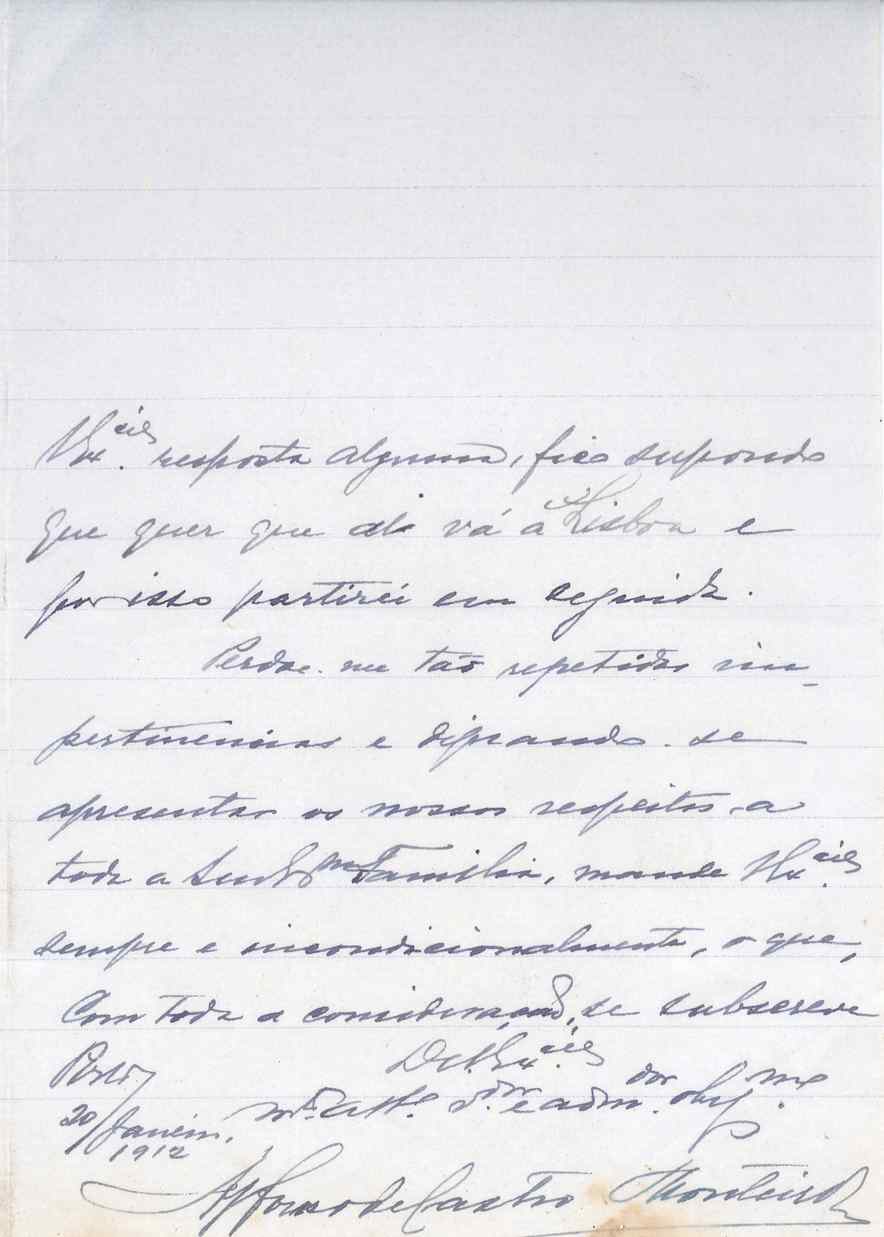 V. Ex.cia resposta alguma, fico supondo
que quer que ali vá a Lisboa e
por isso partirei em seguida.
Perdoe-me tão repetidas im-
pertinencias e dignando-se
apresentar os nossos respeitos a
toda a Ex.ma Familia, mande V. Ex.cia
sempre e incondicionalmente, o que,
com toda a consideração, se subscreve
De V. Ex.cia
Porto,
20/Janeiro,
1912
m.to att.o v.dor e adm.dor obg.mo
Affonso de Castro Monteiro